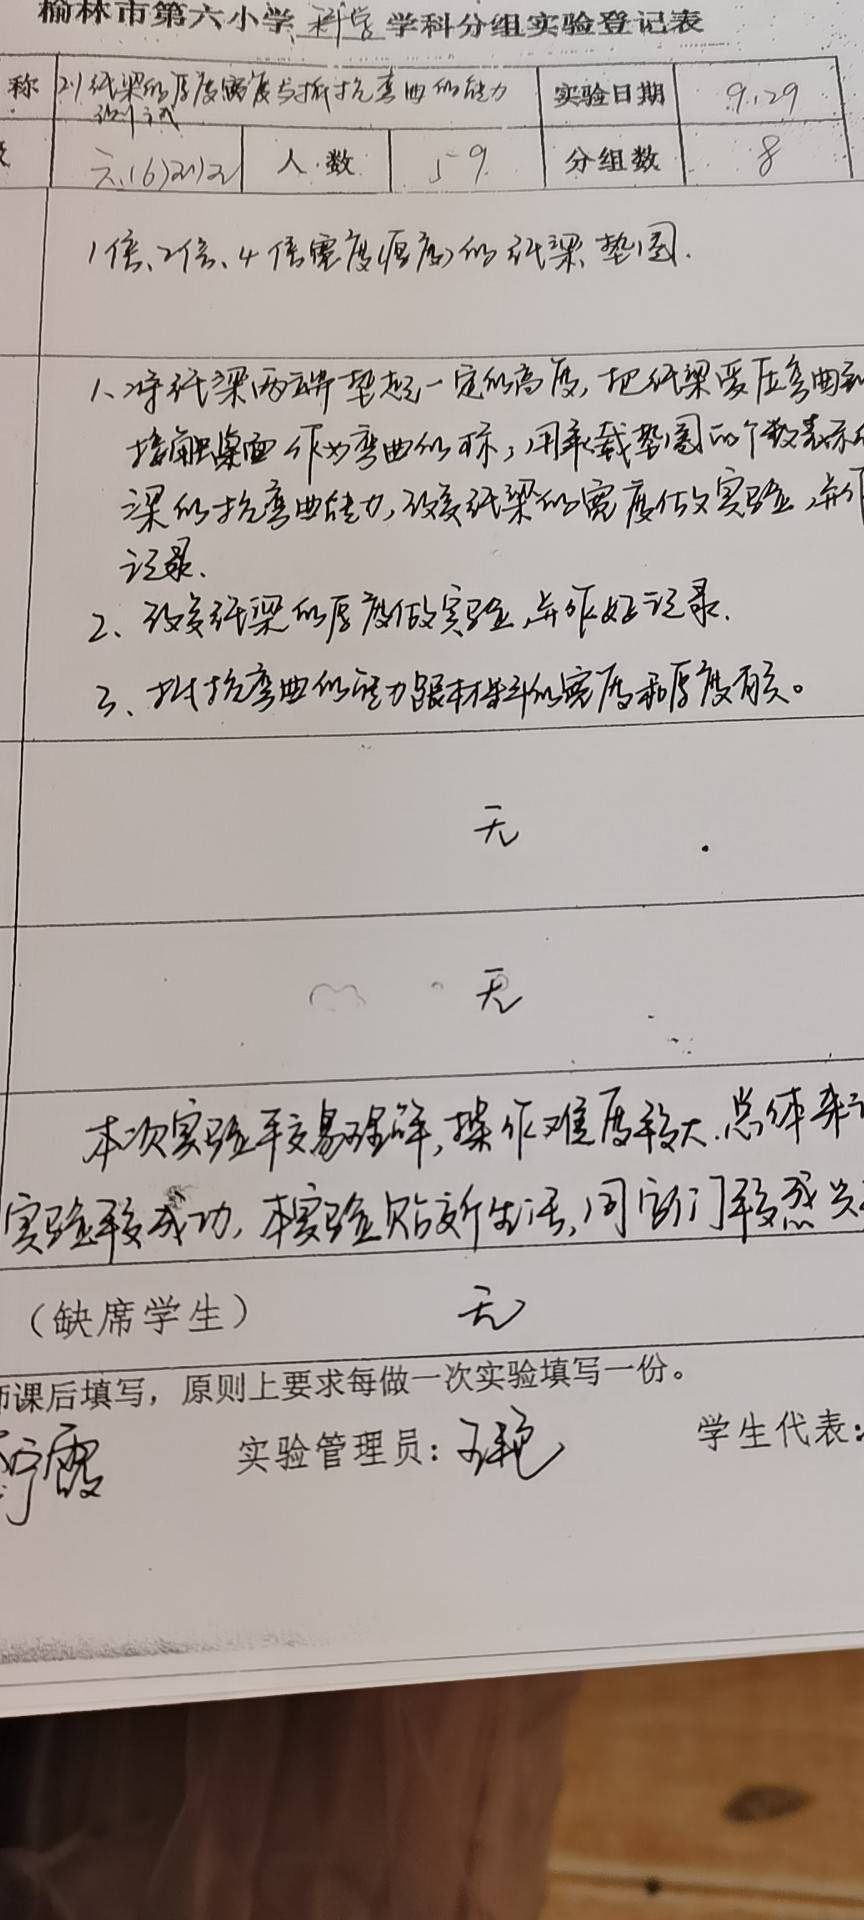 榆林市第六小学 科学 学科分组实验登记表
称 纸梁的厚度宽度与抵抗弯曲的能力 实验日期 9.29
测试
六.(6) 人数 59 分组数 8
1倍、2倍、4倍宽度(厚度)的纸梁、垫圈.
1、将纸梁两端垫起一定的高度,把纸梁受压弯曲到
接触桌面作为弯曲的标,用承载垫圈的个数表示
梁的抗弯曲能力,改变纸梁的宽度做实验,并作
记录.
2、改变纸梁的厚度做实验,并作好记录.
3、抵抗弯曲的能力跟材料的宽度和厚度有关。
无
无
本次实验较易理解,操作难度较大.总体来说
实验较成功,本实验贴近生活,同学们较感兴
(缺席学生) 无
师课后填写,原则上要求每做一次实验填写一份。
霞 实验管理员:王艳 学生代表: